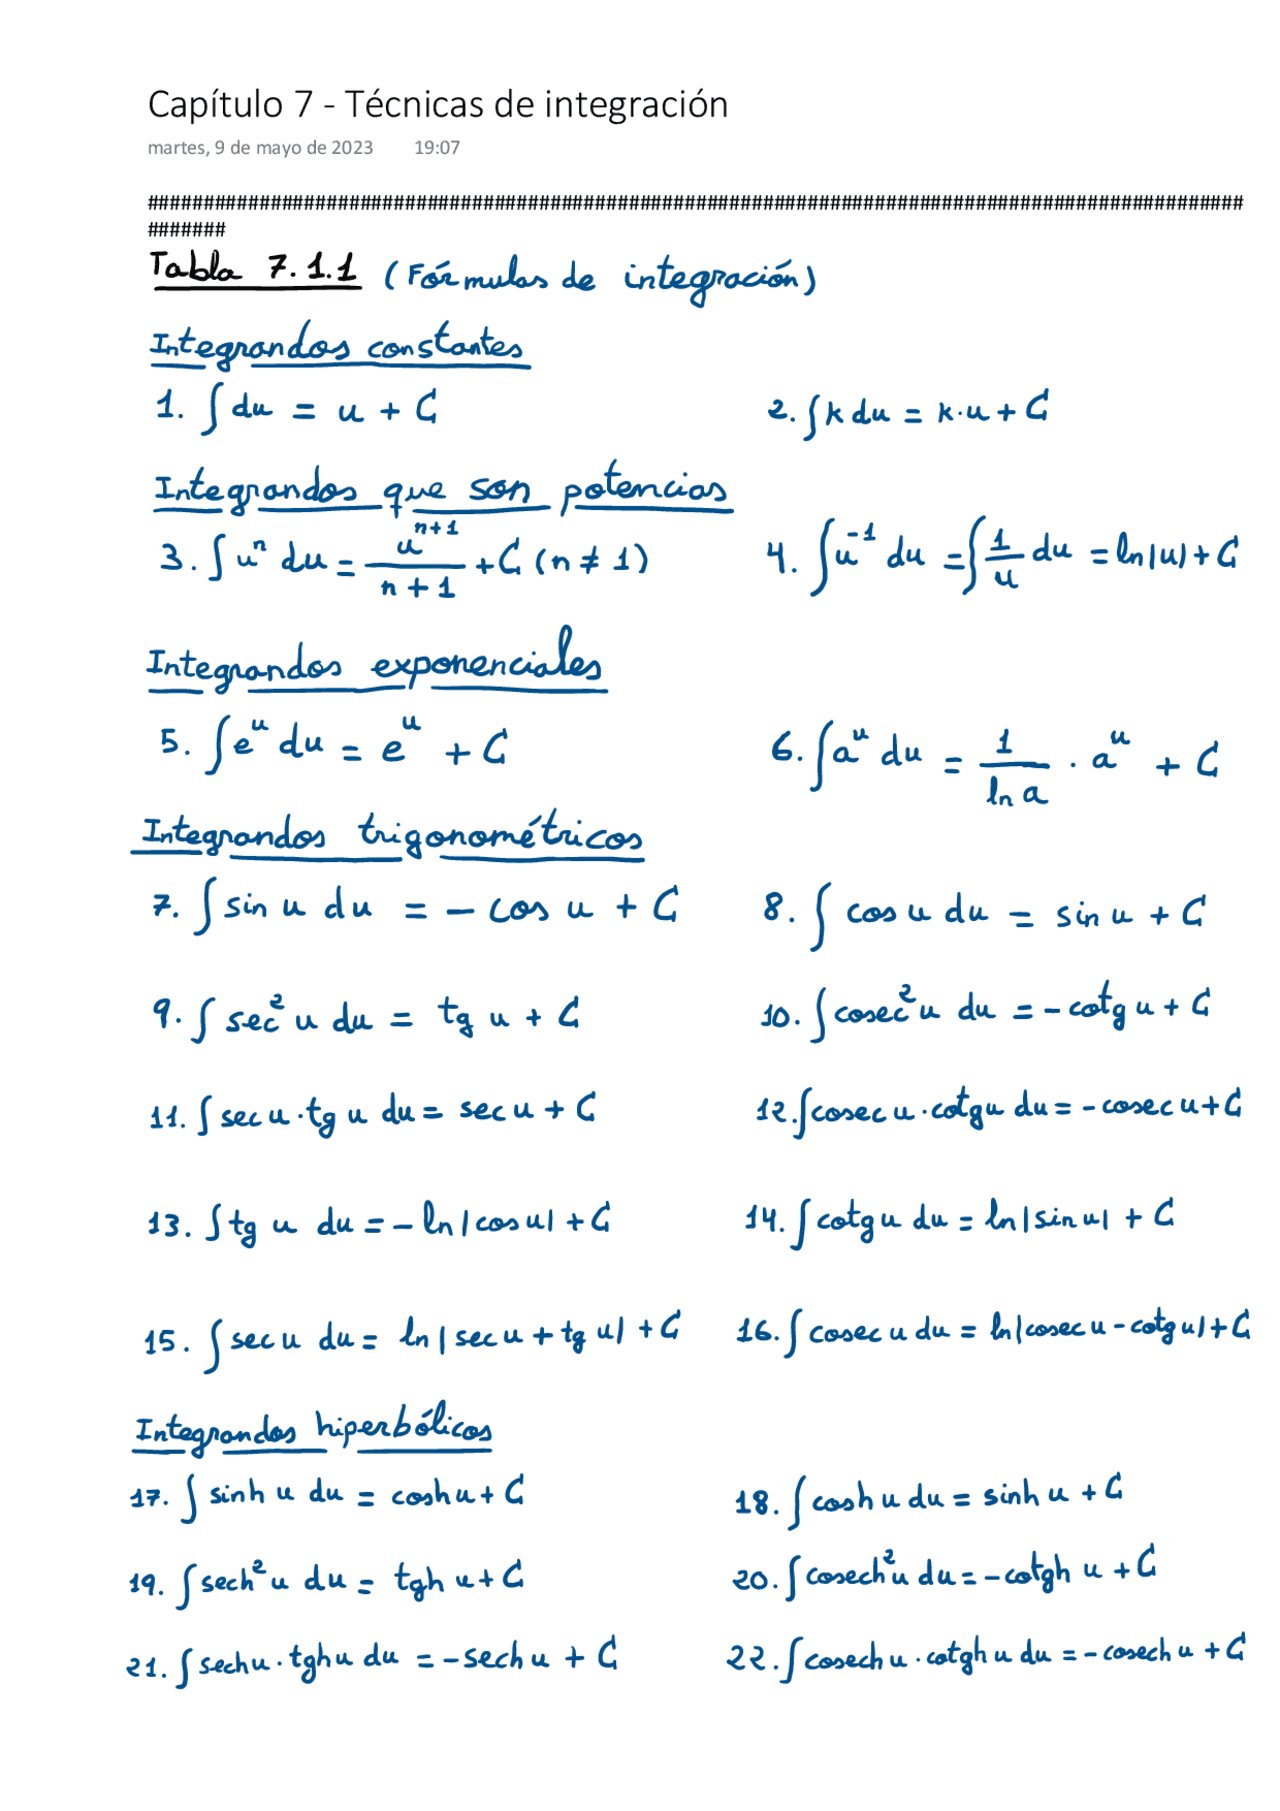 Capítulo 7 - Técnicas de integración
martes, 9 de mayo de 2023 19:07
##################################################################################################
#######
Tabla 7.1.1 (Fórmulas de integración)
Integrandos constantes
1. ∫ du = u + C
2. ∫ k du = k·u + C
Integrandos que son potencias
3. ∫ uⁿ du = uⁿ⁺¹/(n+1) + C (n ≠ 1)
4. ∫ u⁻¹ du = ∫ 1/u du = ln|u| + C
Integrandos exponenciales
5. ∫ eᵘ du = eᵘ + C
6. ∫ aᵘ du = 1/(ln a) · aᵘ + C
Integrandos trigonométricos
7. ∫ sin u du = - cos u + C
8. ∫ cos u du = sin u + C
9. ∫ sec² u du = tg u + C
10. ∫ cosec² u du = - cotg u + C
11. ∫ sec u · tg u du = sec u + C
12. ∫ cosec u · cotg u du = - cosec u + C
13. ∫ tg u du = - ln|cos u| + C
14. ∫ cotg u du = ln|sin u| + C
15. ∫ sec u du = ln|sec u + tg u| + C
16. ∫ cosec u du = ln|cosec u - cotg u| + C
Integrandos hiperbólicos
17. ∫ sinh u du = cosh u + C
18. ∫ cosh u du = sinh u + C
19. ∫ sech² u du = tgh u + C
20. ∫ cosech² u du = - cotgh u + C
21. ∫ sech u · tgh u du = - sech u + C
22. ∫ cosech u · cotgh u du = - cosech u + C